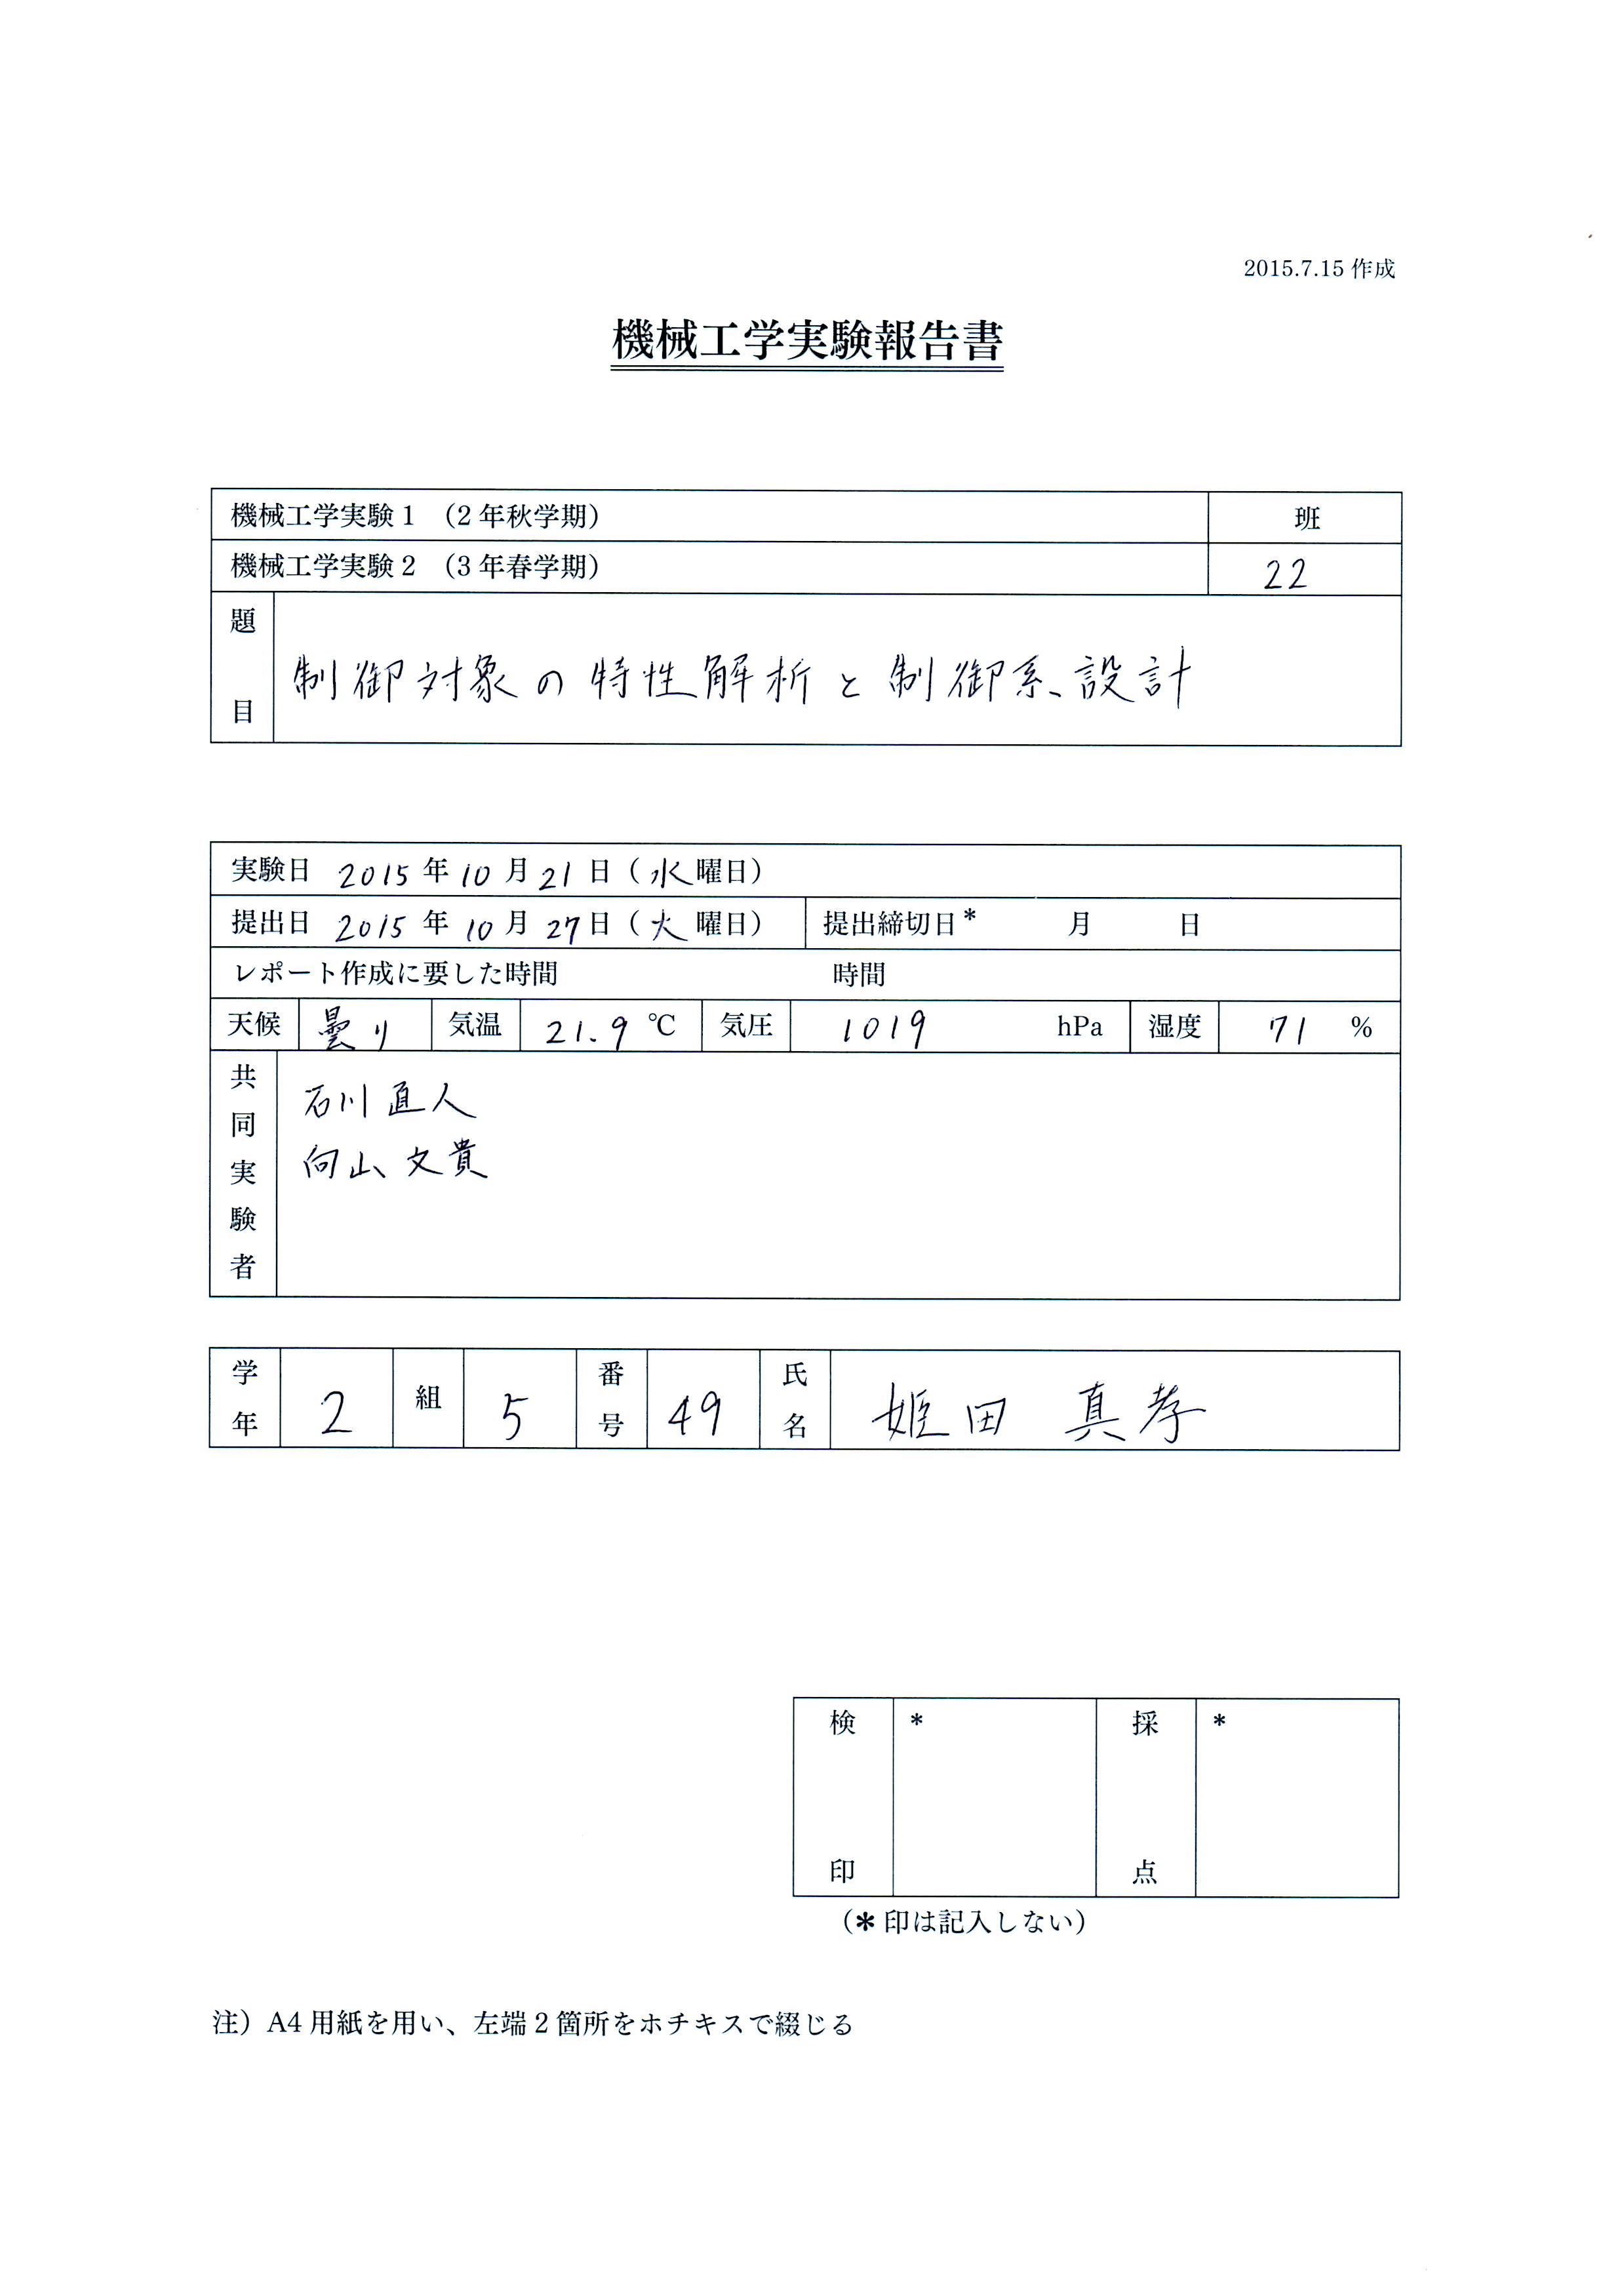 2015.7.15 作成
機械工学実験報告書
機械工学実験 1 （2 年秋学期） 班
機械工学実験 2 （3 年春学期） 22
題目 制御対象の特性解析と制御系設計
実験日 2015 年 10 月 21 日（水曜日）
提出日 2015 年 10 月 27 日（火曜日） 提出締切日* 月 日
レポート作成に要した時間 時間
天候 曇り 気温 21.9 ℃ 気圧 1019 hPa 湿度 71 %
共同実験者 石川 直人
向山 文貴
学年 2 組 5 番号 49 氏名 姫田 真孝
検印 * 採点 *
（* 印は記入しない）
注）A4 用紙を用い、左端 2 箇所をホチキスで綴じる